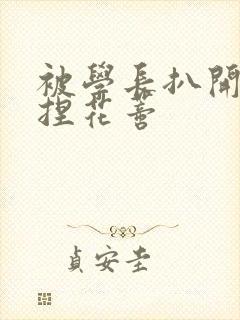 被學長扒開
捏花蕾
貞安圭